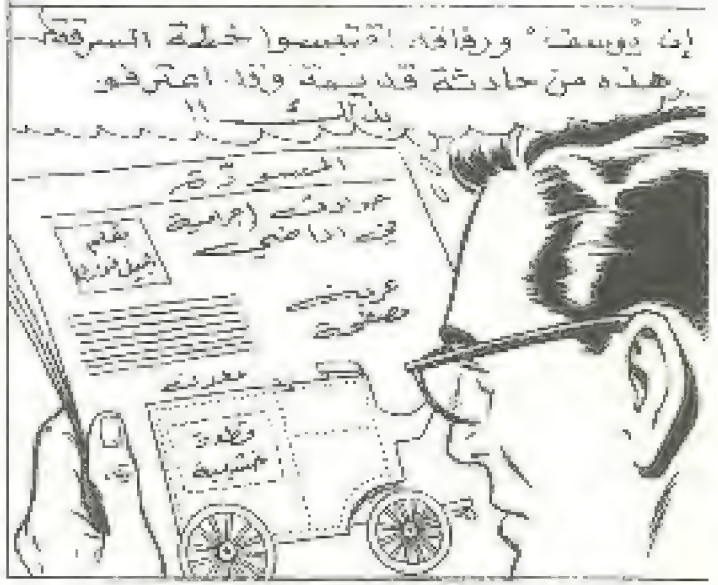 إن يوست ورفاقه اقتبسوا خطة السرقة
هذه من حادثة قديمة وقد اعترفو
بذلك !!
حوادث إجرامية
في الماضي
بقلم
عربة
مصفحة
قطعة
خشبية